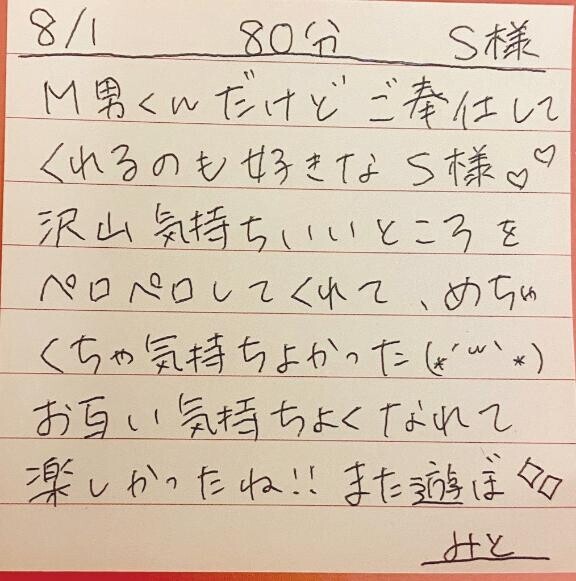 8/1 80分 S様
M男くんだけどご奉仕して
くれるのも好きなS様♡♡
沢山気持ちいいところを
ペロペロしてくれて、めちゃ
くちゃ気持ちよかった(*´ω`*)
お互い気持ちよくなれて
楽しかったね!! また遊ぼ◇◇
みと